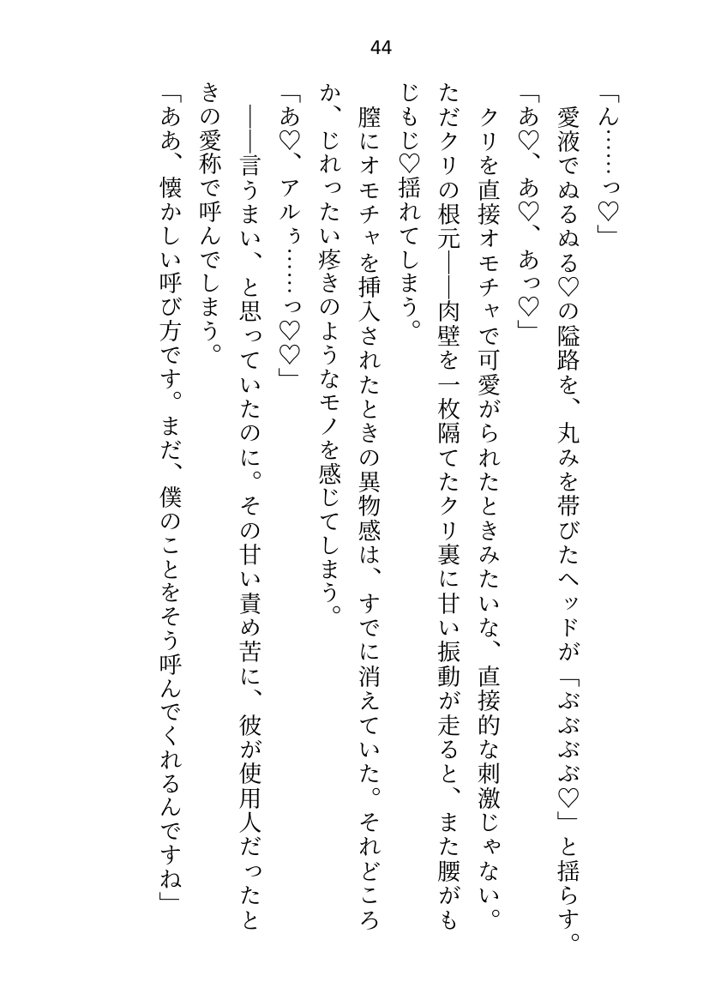 44
「ん……っ♡」
愛液でぬるぬる♡の隘路を、丸みを帯びたヘッドが「ぶぶぶぶ♡」と揺らす。
「あ♡、あ♡、あっ♡」
クリを直接オモチャで可愛がられたときみたいな、直接的な刺激じゃない。
ただクリの根元――肉壁を一枚隔てたクリ裏に甘い振動が走ると、また腰がも
じもじ♡揺れてしまう。
膣にオモチャを挿入されたときの異物感は、すでに消えていた。それどころ
か、じれったい疼きのようなモノを感じてしまう。
「あ♡、アルぅ……っ♡♡」
――言うまい、と思っていたのに。その甘い責め苦に、彼が使用人だったと
きの愛称で呼んでしまう。
「ああ、懐かしい呼び方です。まだ、僕のことをそう呼んでくれるんですね」